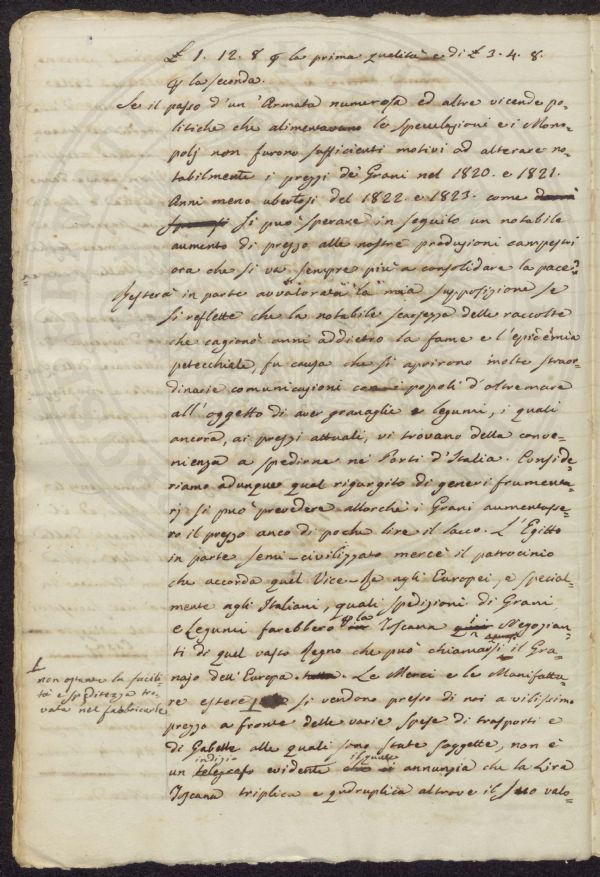 £ 1. 12. 8 p la prima qualità e di £ 3. 4. 8.
p la seconda.
Se il passo d'un'Armata numerosa ed altre vicende po-
litiche che alimentavano le speculazioni e i Mono-
polj non furono sufficienti motivi ad alterare no-
tabilmente i prezzi dei Grani nel 1820. e 1821.
Anni meno ubertosi del 1822. e 1823. come
si può sperare in seguito un notabile
aumento di prezzo alle nostre produzioni campestri
ora che si va sempre più a consolidare la pace?
Resterà in parte avvalorata la mia supposizione se
si reflette che la notabile scarsezza delle raccolte
che cagionò anni addietro la fame e l'epidemia
petecchiale, fu causa che si aprirono molte straor-
dinarie comunicazioni con i popoli d'oltremare
all'oggetto di aver granaglie e legumi, i quali
ancora, ai prezzi attuali, vi trovano della conve-
nienza a spedirne nei Porti d'Italia. Conside-
riamo adunque qual rigurgito di generi frumenta-
rj si può prevedere allorchè i Grani aumentasse-
ro il prezzo anco di poche lire il sacco. L'Egitto
in parte semi-civilizzato mercè il patrocinio
che accorda quel Vice-Re agli Europei, e special-
mente agli Italiani, quali spedizioni di Grani
e Legumi farebbero p la Toscana i Negozian-
ti di quel vasto Regno che può chiamarsi il Gra-
najo dell'Europa. Le Merci e le Manifattu-
re estere si vendono presso di noi a vilissimo
non ostante la facili-
tà e speditezza tro-
vata nel fabbricarle
prezzo a fronte delle varie spese di trasporti e
di Gabelle alle quali sono state soggette, non è
indizio il quale
un telegrafo evidente che ci annunzia che la Lira
Toscana triplica e quadruplica altrove il suo valo-